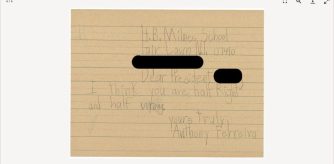 H.B. Milnes School
Fair Lawn NJ 07410
Dear President
I think you are half Right
and half wrong
yours Truly,
Anthony Ferreira